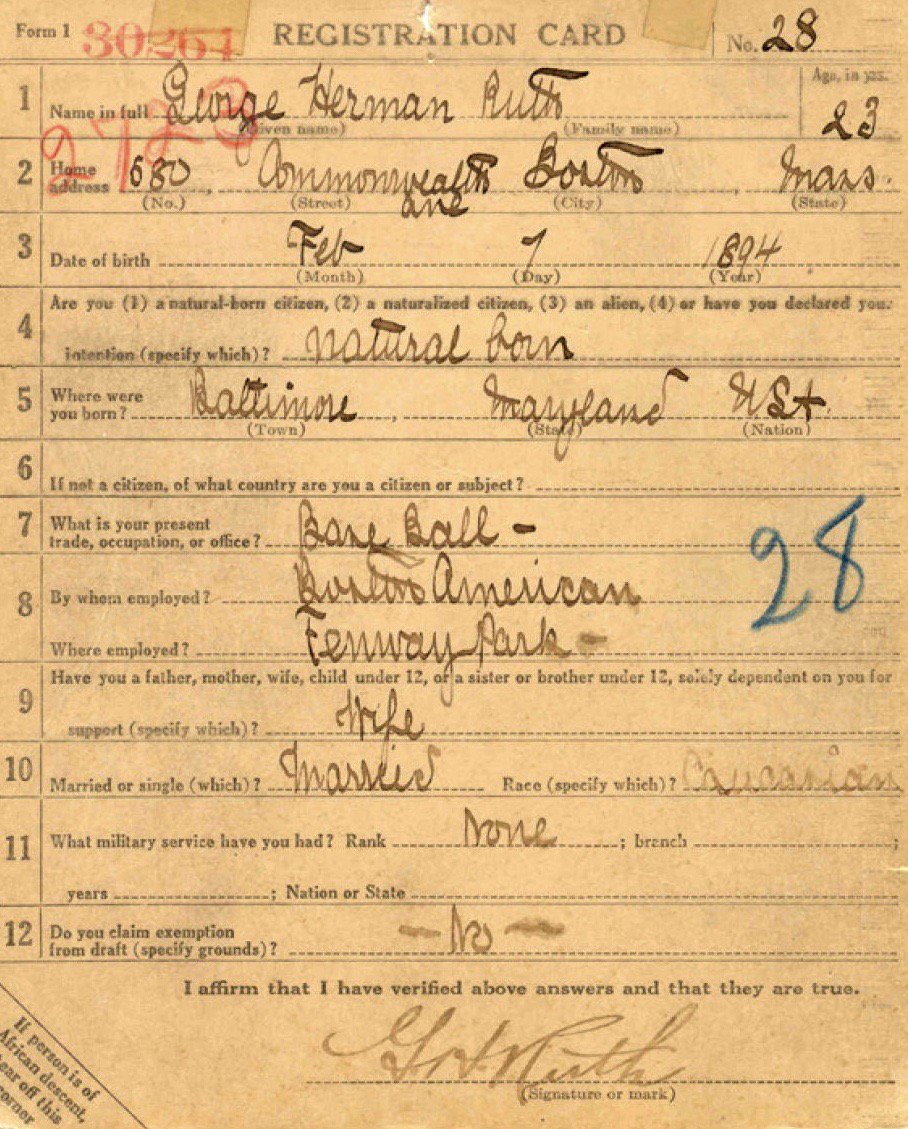 Form 1 30261 REGISTRATION CARD No. 28
1 Name in full George Herman Ruth Age, in yrs.
(Given name) (Family name) 23
2723
2 Home address 680 Commonwealth Ave Boston, Mass.
(No.) (Street) (City) (State)
3 Date of birth Feb 7 1894
(Month) (Day) (Year)
4 Are you (1) a natural-born citizen, (2) a naturalized citizen, (3) an alien, (4) or have you declared your
intention (specify which)? natural born
5 Where were you born? Baltimore, Maryland USA.
(Town) (State) (Nation)
6 If not a citizen, of what country are you a citizen or subject?
7 What is your present
trade, occupation, or office? Base Ball -
28
8 By whom employed? Boston American
Where employed? Fenway Park -
9 Have you a father, mother, wife, child under 12, or a sister or brother under 12, solely dependent on you for
support (specify which)? Wife
10 Married or single (which)? Married Race (specify which)? Caucasian
11 What military service have you had? Rank None ; branch ;
years ; Nation or State
12 Do you claim exemption
from draft (specify grounds)? - No -
I affirm that I have verified above answers and that they are true.
G H Ruth
(Signature or mark)
If person is of
African descent,
tear off this
corner